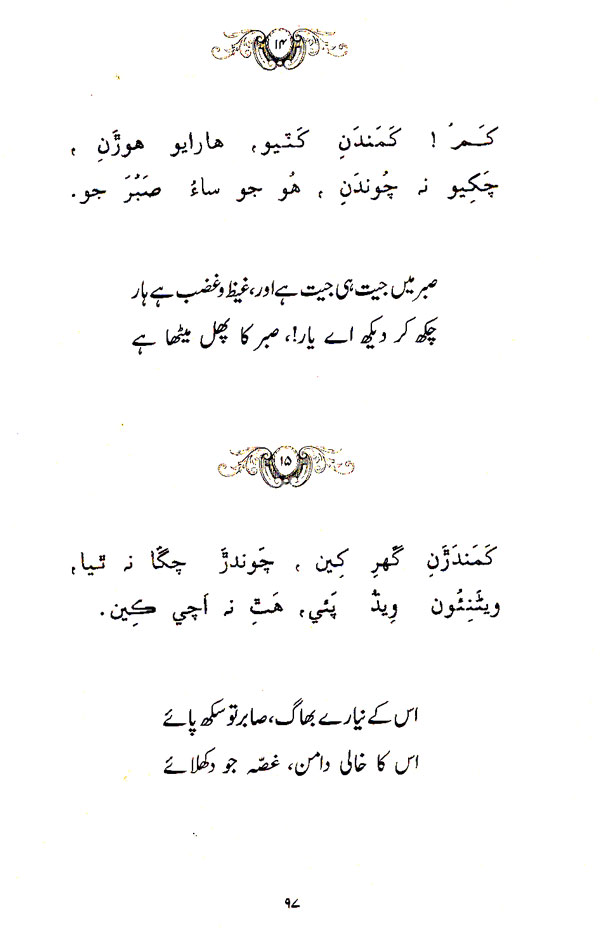 ۱۴
کَـمُ ! کَمَندَنِ کَٽيو، هارايو هوڙَنِ ،
چَکِيو نہ چُوندَنِ ، هُو جو ساءُ صَبُرَ جو.
صبر میں جیت ہی جیت ہے اور، غیظ و غضب ہے ہار
چکھ کر دیکھ اے یار!، صبر کا پھل میٹھا ہے
۱۵
کَمَندَڙَنِ گَهرِ کِين ، چَوندڙَ چڱا نہ ٿيا،
ويٺَنِئُون وِيڌُ پَئي، هَٿِ نہ اَچي ڪِين.
اس کے نیارے بھاگ، صابر تو سکھ پائے
اس کا خالی دامن، غصّہ جو دکھلائے
۹۷